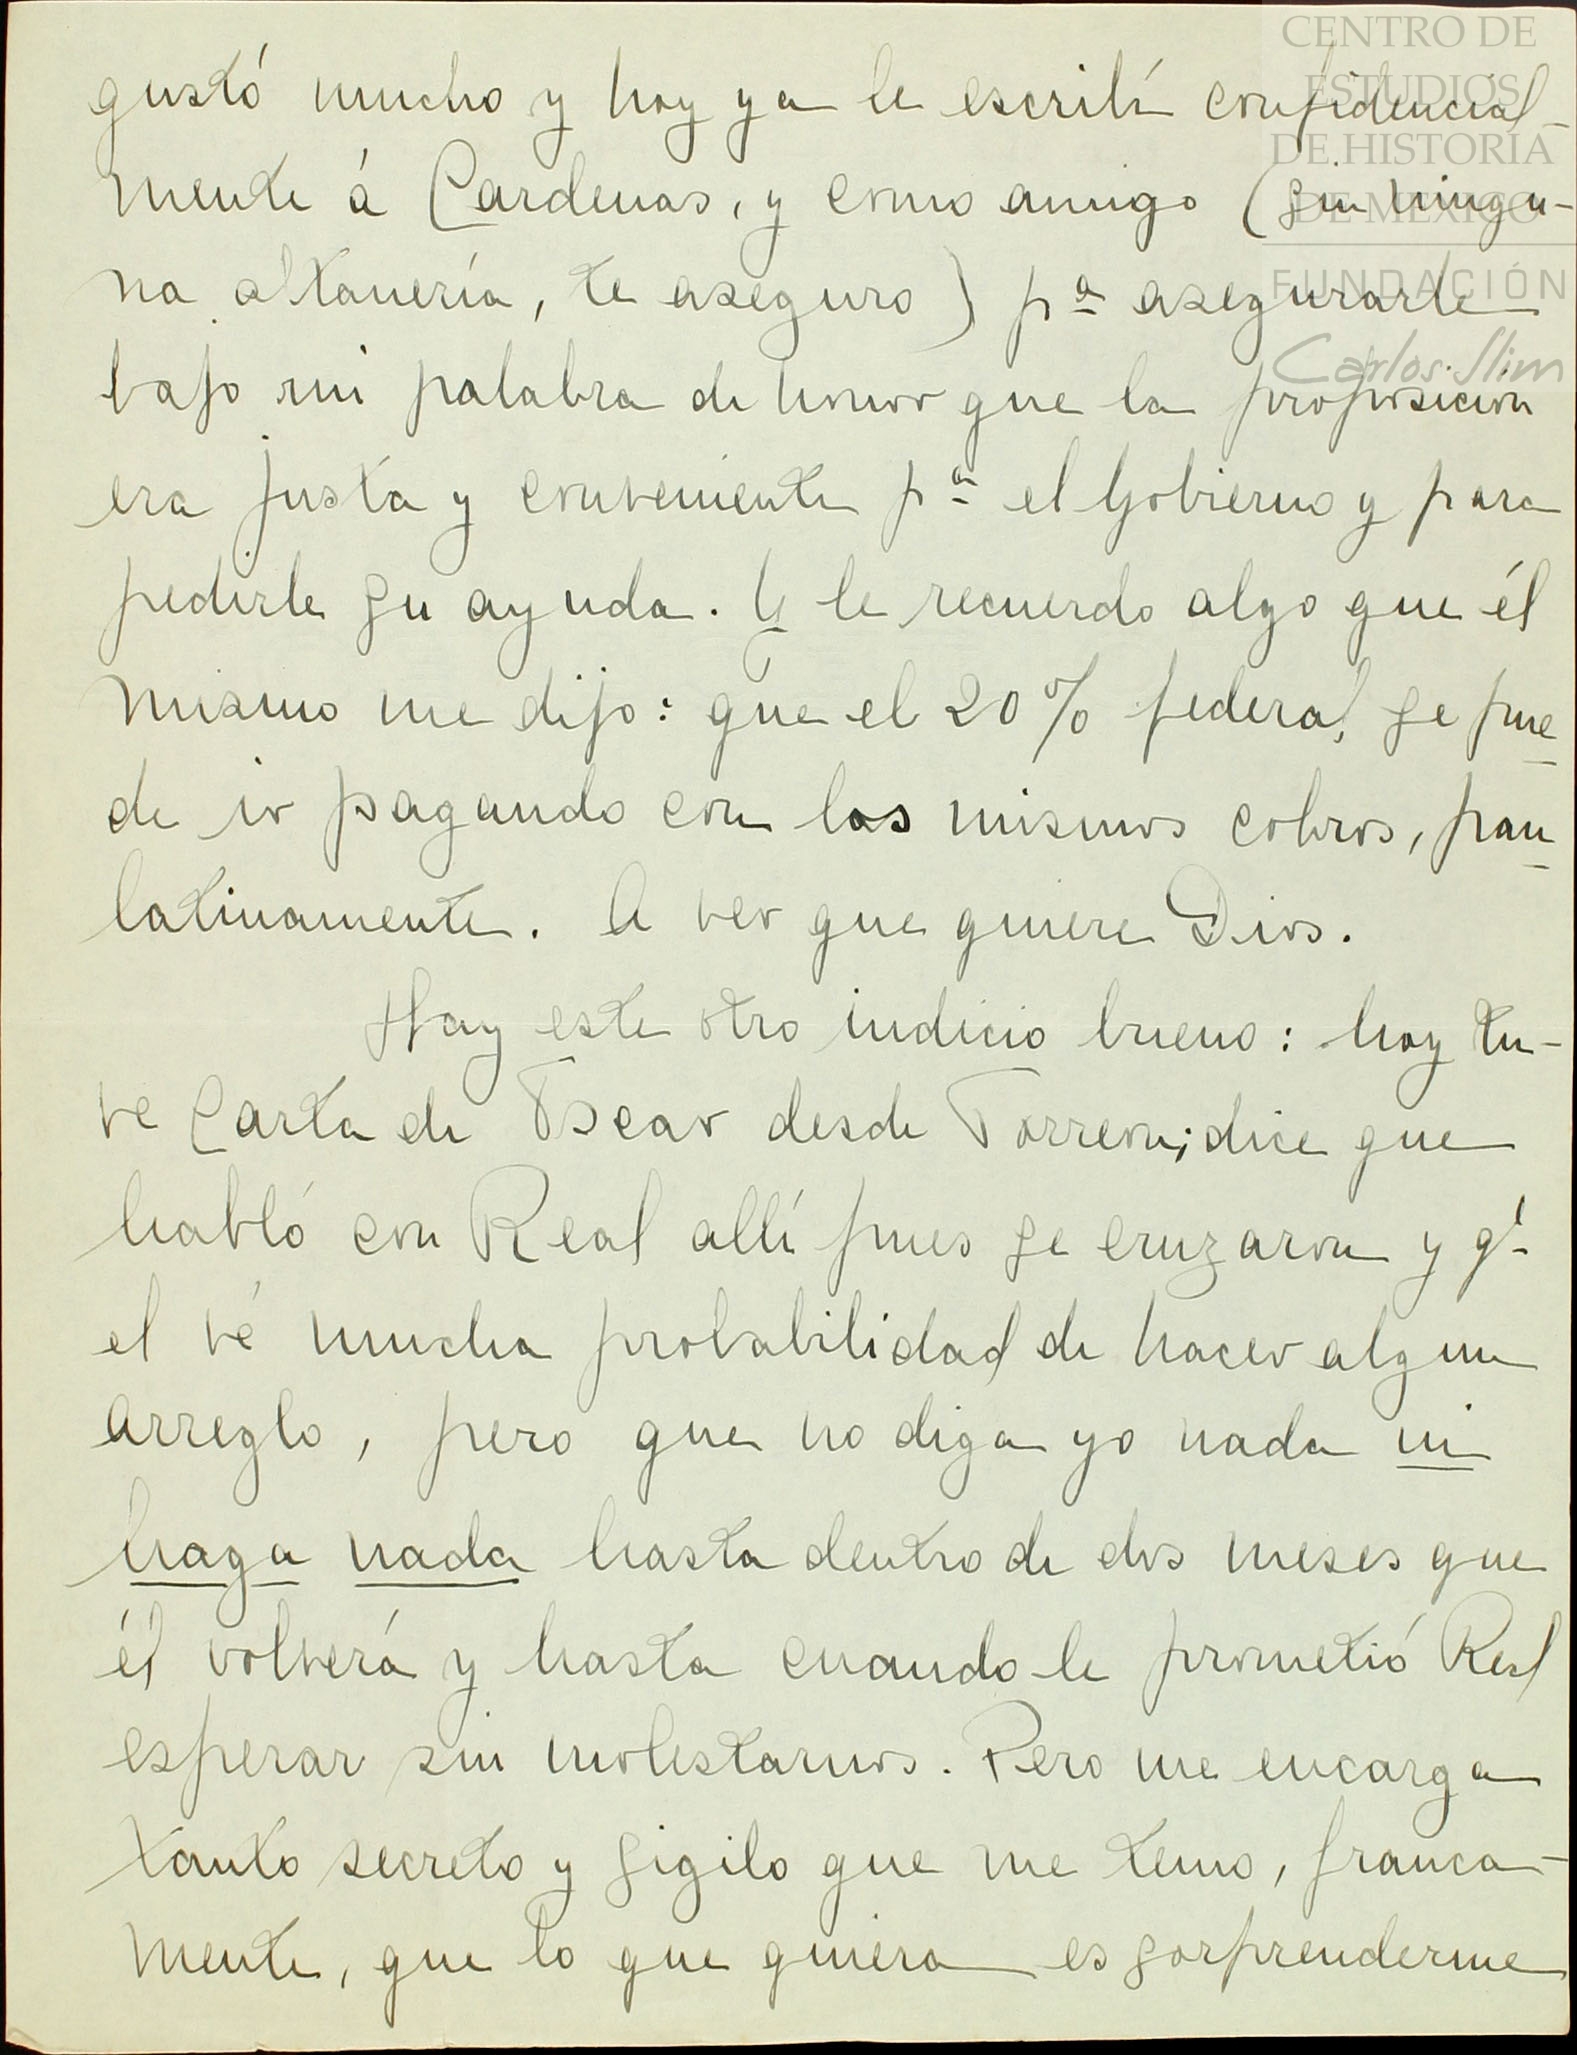 CENTRO DE
ESTUDIOS
DE HISTORIA
DE MÉXICO
FUNDACIÓN
Carlos Slim
gustó mucho y hoy ya le escribí confidencial-
mente á Cardenas, y como amigo (sin ningu-
na altanería, te aseguro) pª asegurarle
bajo mi palabra de honor que la proposicion
era justa y conveniente pª el Gobierno y para
pedirle su ayuda. Y le recuerdo algo que él
mismo me dijo: que el 20% federal, se pue-
de ir pagando con los mismos cobros, pau-
latinamente. A ver que quiere Dios.
Hay este otro indicio bueno: hoy tu-
ve carta de Oscar desde Torreon; dice que
habló con Real allí pues se cruzaron y q'
el vé mucha probabilidad de hacer algun
arreglo, pero que no diga yo nada ni
haga nada hasta dentro de dos meses que
él volverá y hasta cuando le prometió Real
esperar sin molestarnos. Pero me encarga
tanto secreto y sigilo que me temo, franca-
mente, que lo que quiera es sorprenderme